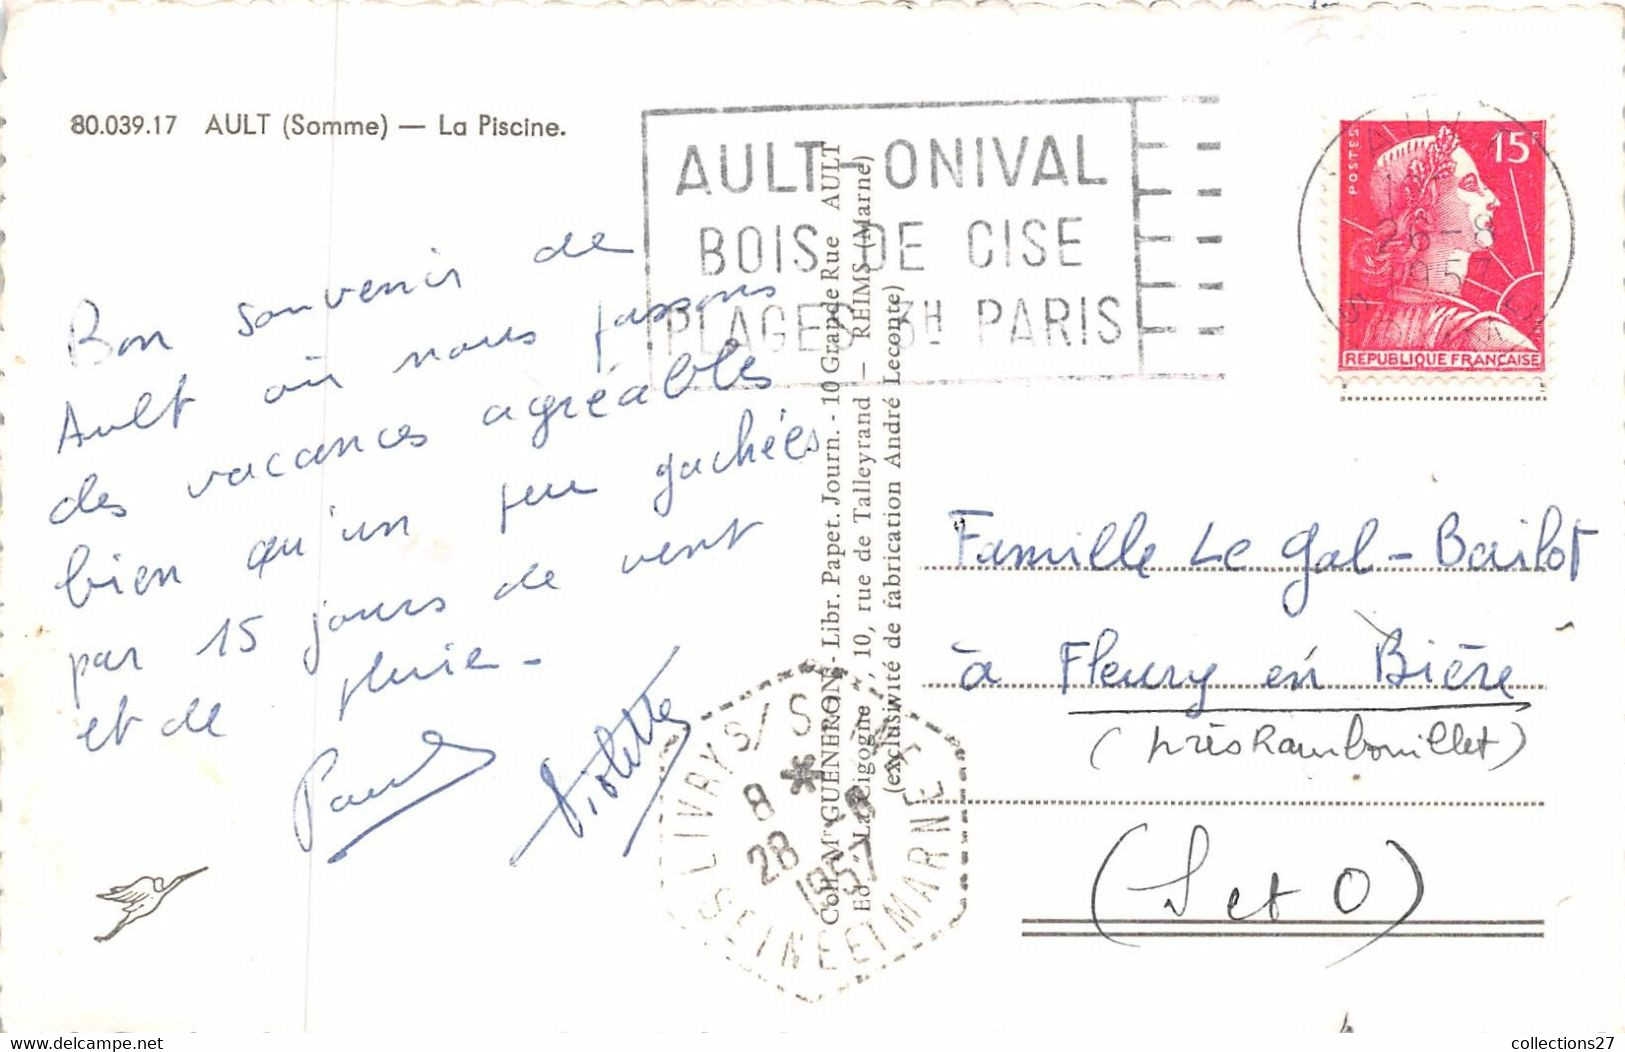 80.039.17 AULT (Somme) — La Piscine.
AULT - ONIVAL
BOIS DE CISE
PLAGES 3H PARIS
26-8
1957
POSTES
15F
REPUBLIQUE FRANÇAISE
Bon souvenir de
Ault où nous passons
des vacances agréables
bien qu'un peu gachées
par 15 jours de vent
et de pluie -
Paul
Violette
Coll. Mr GUENERON - Libr. Papet. Journ. - 10 Grande Rue AULT
Ed "La Cigogne", 10, rue de Talleyrand — REIMS (Marne)
(exclusivité de fabrication André Leconte)
LIVRY S/ SEINE
8 *
28 -8
1957
SEINE ET MARNE
Famille Le Gal - Bailot
à Fleury en Bière
(près Rambouillet)
(S et O)
collections27